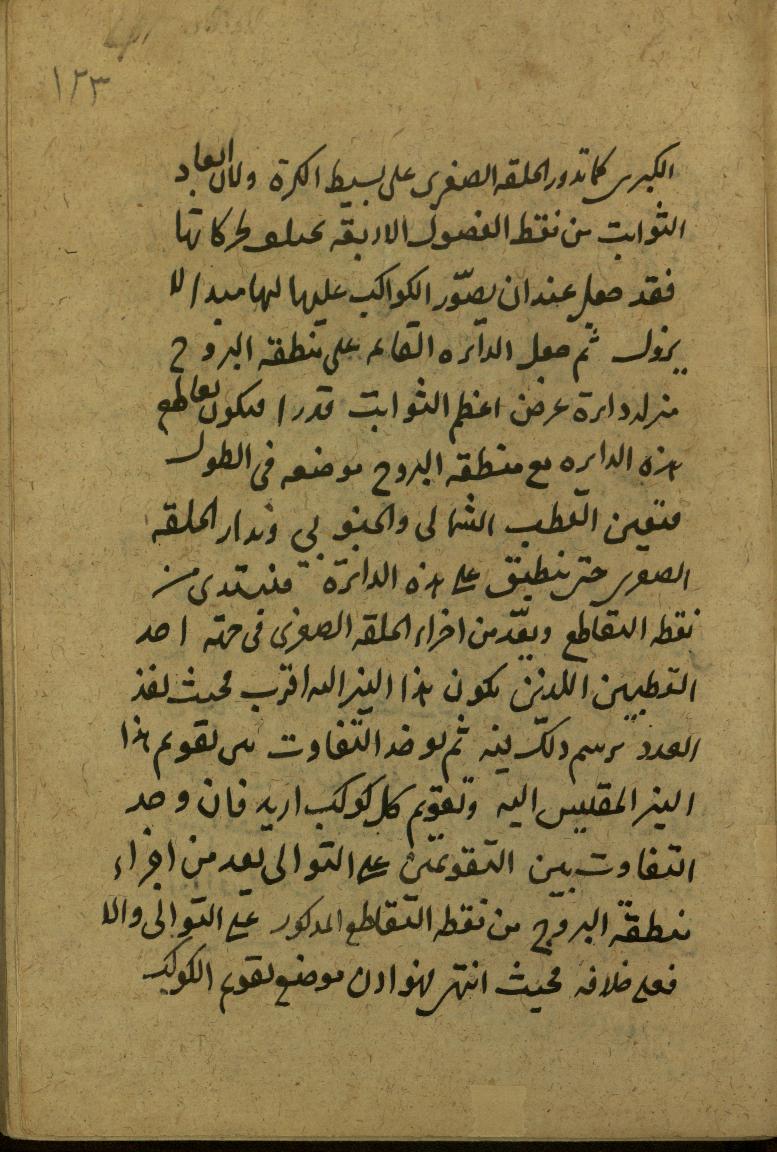 ١٢٣
الكبرى كما تدور الحلقه الصغرى على بسيط الكرة ولان ابعاد
الثوابت من نقط الفصول الاربعه مختلف لحركاتها
فقد جعل عند ان يصوّر الكواكب عليها لها مبدا لا
يزول ثم جعل الدائره القائمه على منطقة البروج
منزلة دايرة عرض اعظم الثوابت قدرا فيكون تقاطع
هذه الدايره مع منطقه البروج موضعه فى الطول
فتعين القطب الشمالى والجنوبي وتدار الحلقه
الصغرى حتى ينطبق على هذه الدائرة فيبتدى من
نقطه التقاطع ويعدّ من اجزاء الحلقه الصغرى فى جهة احد
القطبين اللذين يكون هذا النير اليه اقرب فحيث نفذ
العدد يرسم ذلك فيه ثم يوخذ التفاوت بين تقويم هذا
النير المقيس اليه وتقويم كل كوكب اريد فان وجد
التفاوت بين التقويمين على التوالى يعد من اجزاء
منطقة البروج من نقطه التقاطع المذكور على التوالى والا
فعلى خلافه فحيث انتهى فهو اذن موضع تقويم الكوكب